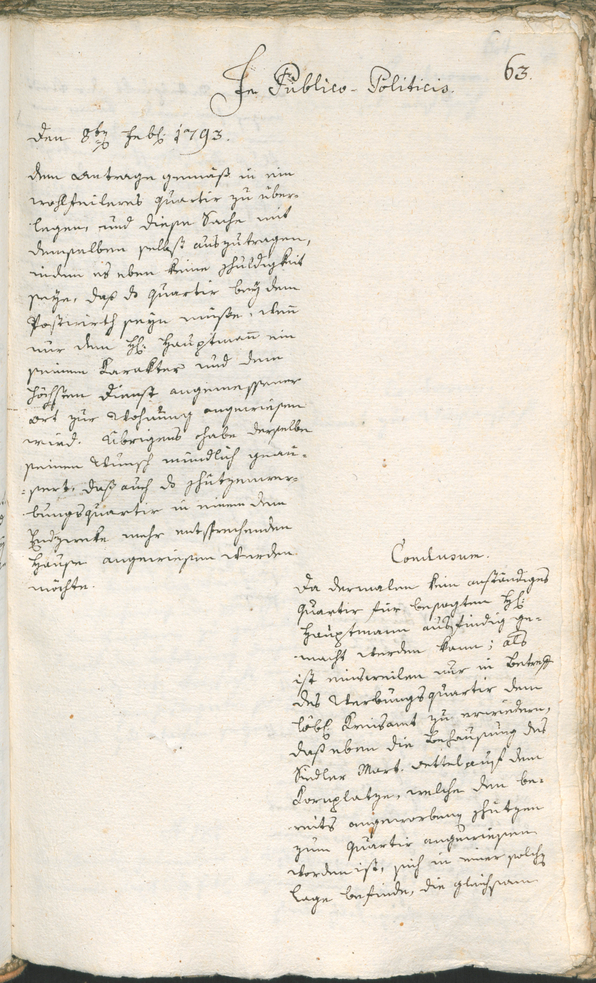 In Publico-Politicis.
63.
Den 8ten Febr: 1793.
dem Antrage gemäß in ein
wohlfeileres Quartir zu über-
legen, und diese Sache mit
demselben selbst auszutragen,
indem es eben keine Schuldigkeit
seÿe, daß ds Quartir beÿ dem
Postwirth seÿn müße, wenn
nur dem H: Hauptmann ein
seinem Karakter und dem
höchsten Dienst angemessener
Ort zur Wohnung angewiesen
wird. Übrigens habe derselbe
seinen Wunsch mündlich geäu-
-sert, daß auch ds Schützenwer-
bungsquartir in einem dem
Endzwecke mehr entsprechenden
Hause angewiesen werden
möchte.
Conclusum.
Da dermalen kein anständiges
Quartir für besagten H:
Hauptmann ausfindig ge-
macht werden kann; als
ist einsweilen nur in Betreff
des Werbungsquartir dem
löbl: Kreisamt zu erwiedern,
daß eben die Behausung des
Sindler Mart: Oettel auf dem
Kornplatze, welche den be-
reits angeworbenen Schützen
zum Quartir angewiesen
worden ist, sich in einer solchen
Lage befinde, die gleichsam